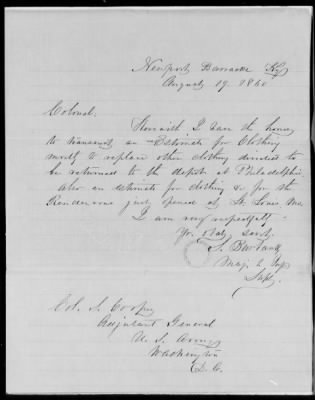 Newport Barracks Ky
August 19. 1860
Colonel.
Herewith I have the honor
to transmit an Estimate for Clothing
to replace other clothing directed to
be returned to the depot at Philadelphia,
also an estimate for clothing &c for the
Rendezvous just opened at St. Louis, Mo
I am very respectfully
Yr. obt. servt.
S. Burbank
Maj. 2 Inf
Supt.
Col. S. Cooper
Adjutant General
U. S. Army
Washington
D. C.